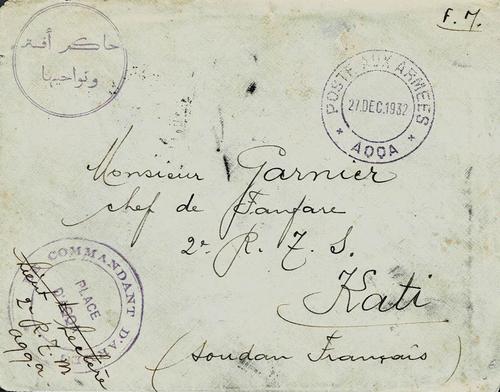 F. M.
حاكم أقـ
ونواحيها
POSTE AUX ARMEES
27.DEC.1932
* AQQA *
Monsieur Garnier
chef de Fanfare
2e R. T. S.
Kati
(Soudan Français)
COMMANDANT D'AR
PLACE
D'AQQA
2e R. T. M.
aqqa